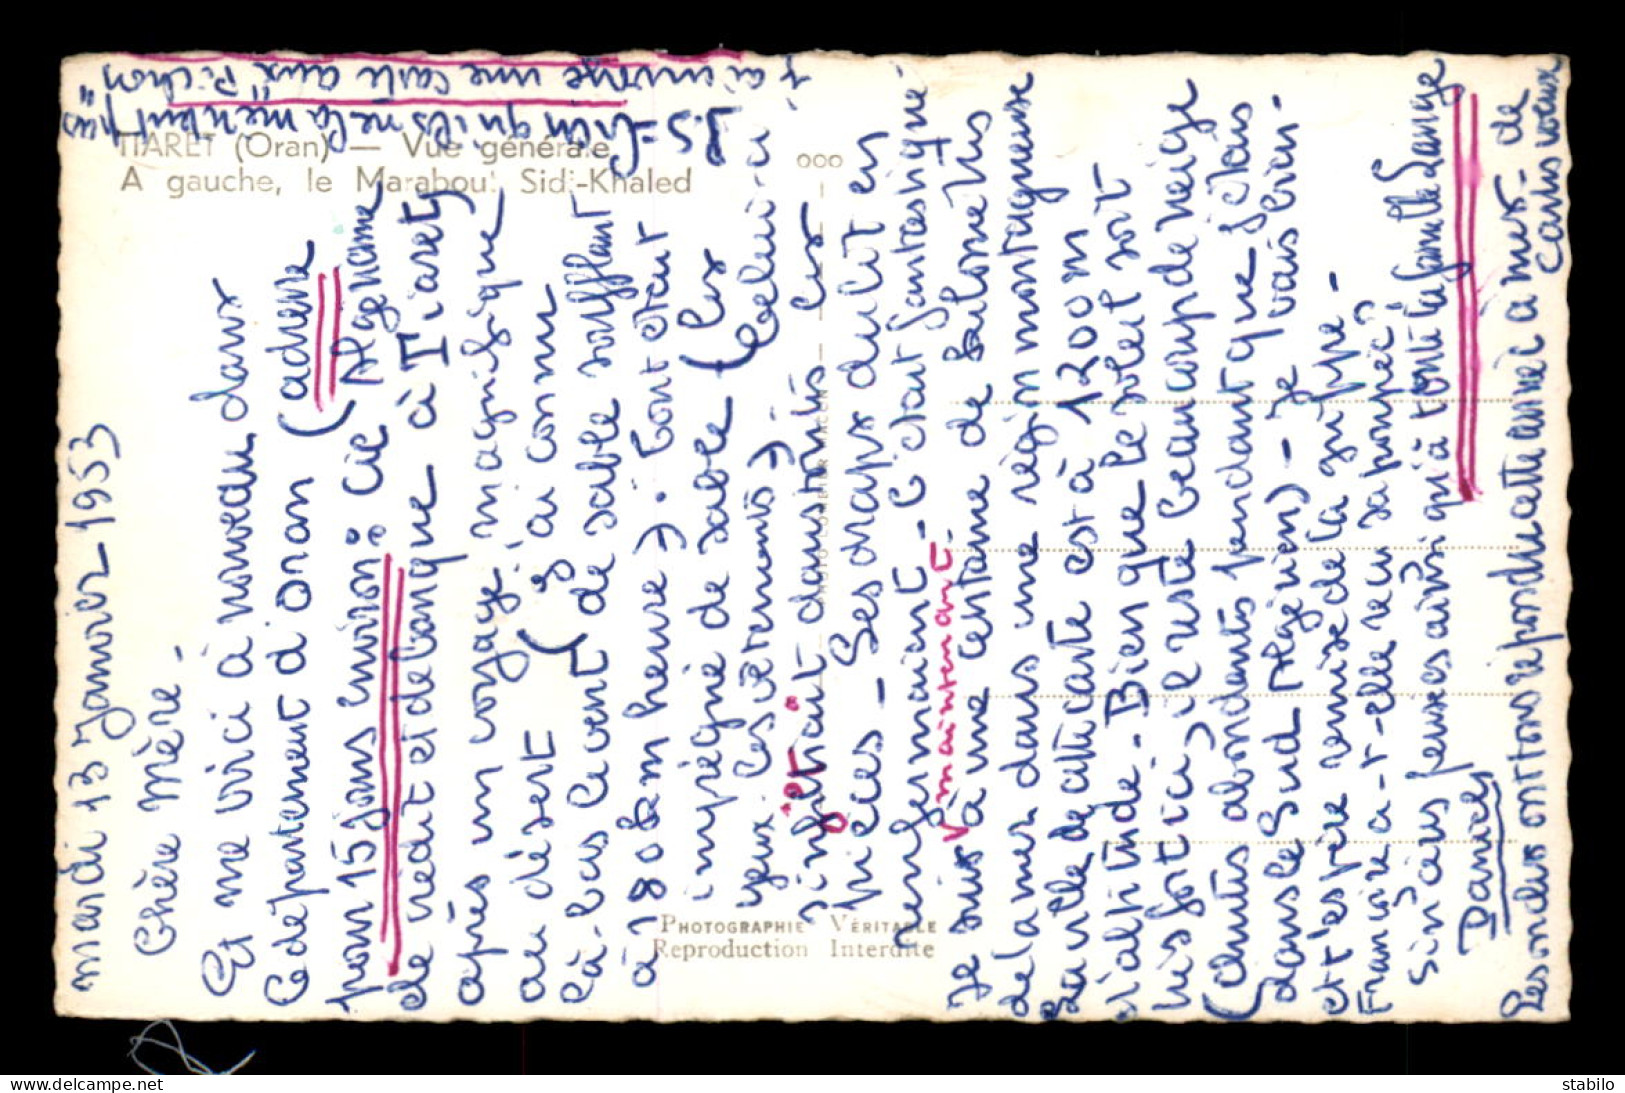 TIARET (Oran) — Vue générale
A gauche, le Marabout Sidi-Khaled
PHOTOGRAPHIE VÉRITABLE
Reproduction Interdite
mardi 13 Janvier 1953
Chère Mère -
Et me voici à nouveau dans
le département d'Oran (adresse
pour 15 jours environ : Cie Algérienne
de crédit et de banque à Tiaret)
après un voyage magnifique
au désert (j'ai connu
là-bas le vent de sable soufflant
à 180 km heure). Tout était
imprégné de sable (les
yeux, les vêtements). Celui-ci
s'infiltrait dans toutes les
pièces - Les draps du lit en
renfermaient - C'était fantastique.
Je suis maintenant à une centaine de kilomètres
de la mer dans une région montagneuse
La ville de cette carte est à 1200 m
d'altitude - Bien que le soleil soit
très fort ici, il reste beaucoup de neige
(chutes abondantes pendant que j'étais
dans le Sud Algérien) - Je vais bien -
et t'espère remise de la grippe -
Francine a-t-elle reçu sa poupée ?
Sincères pensées ainsi qu'à toute la famille Lange
Daniel
Les oncles ont tous répondu cette année à mes
cartes de voeux
P.S =
j'ai envoyé une carte aux Pichon
qu'ils ne la méritent pas"
stabilo
delcampe.net